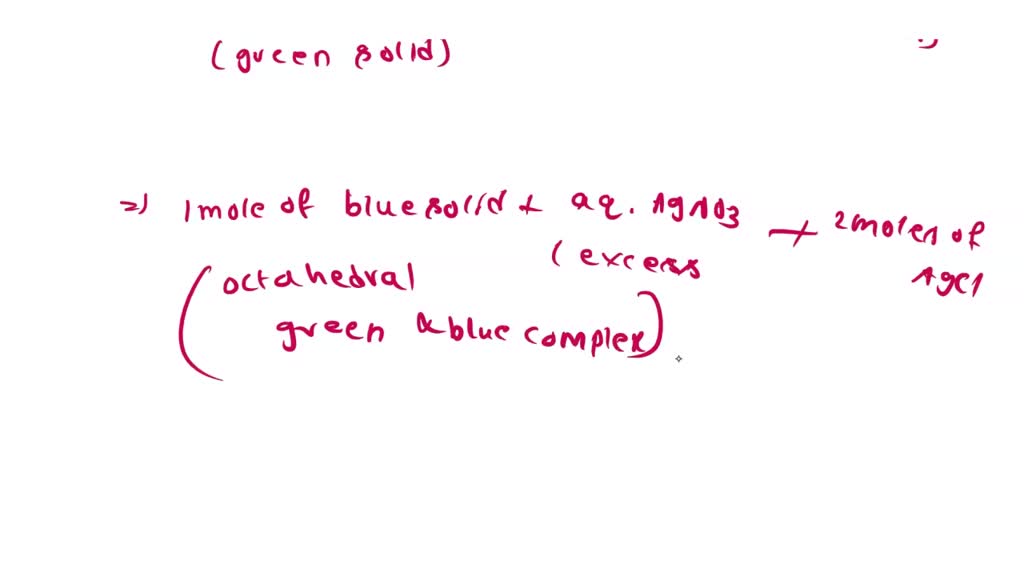 (green solid)
=) 1 mole of blue solid + aq. AgNO3
(excess
2 moles of
AgCl
(octahedral
green & blue complex)